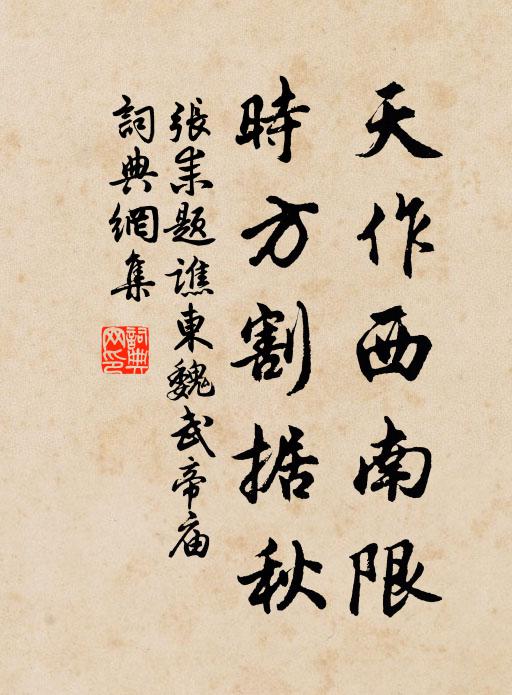 天作西南限
時方割据秋
張耒題譙東魏武帝庙
詞典網集
詞典网印